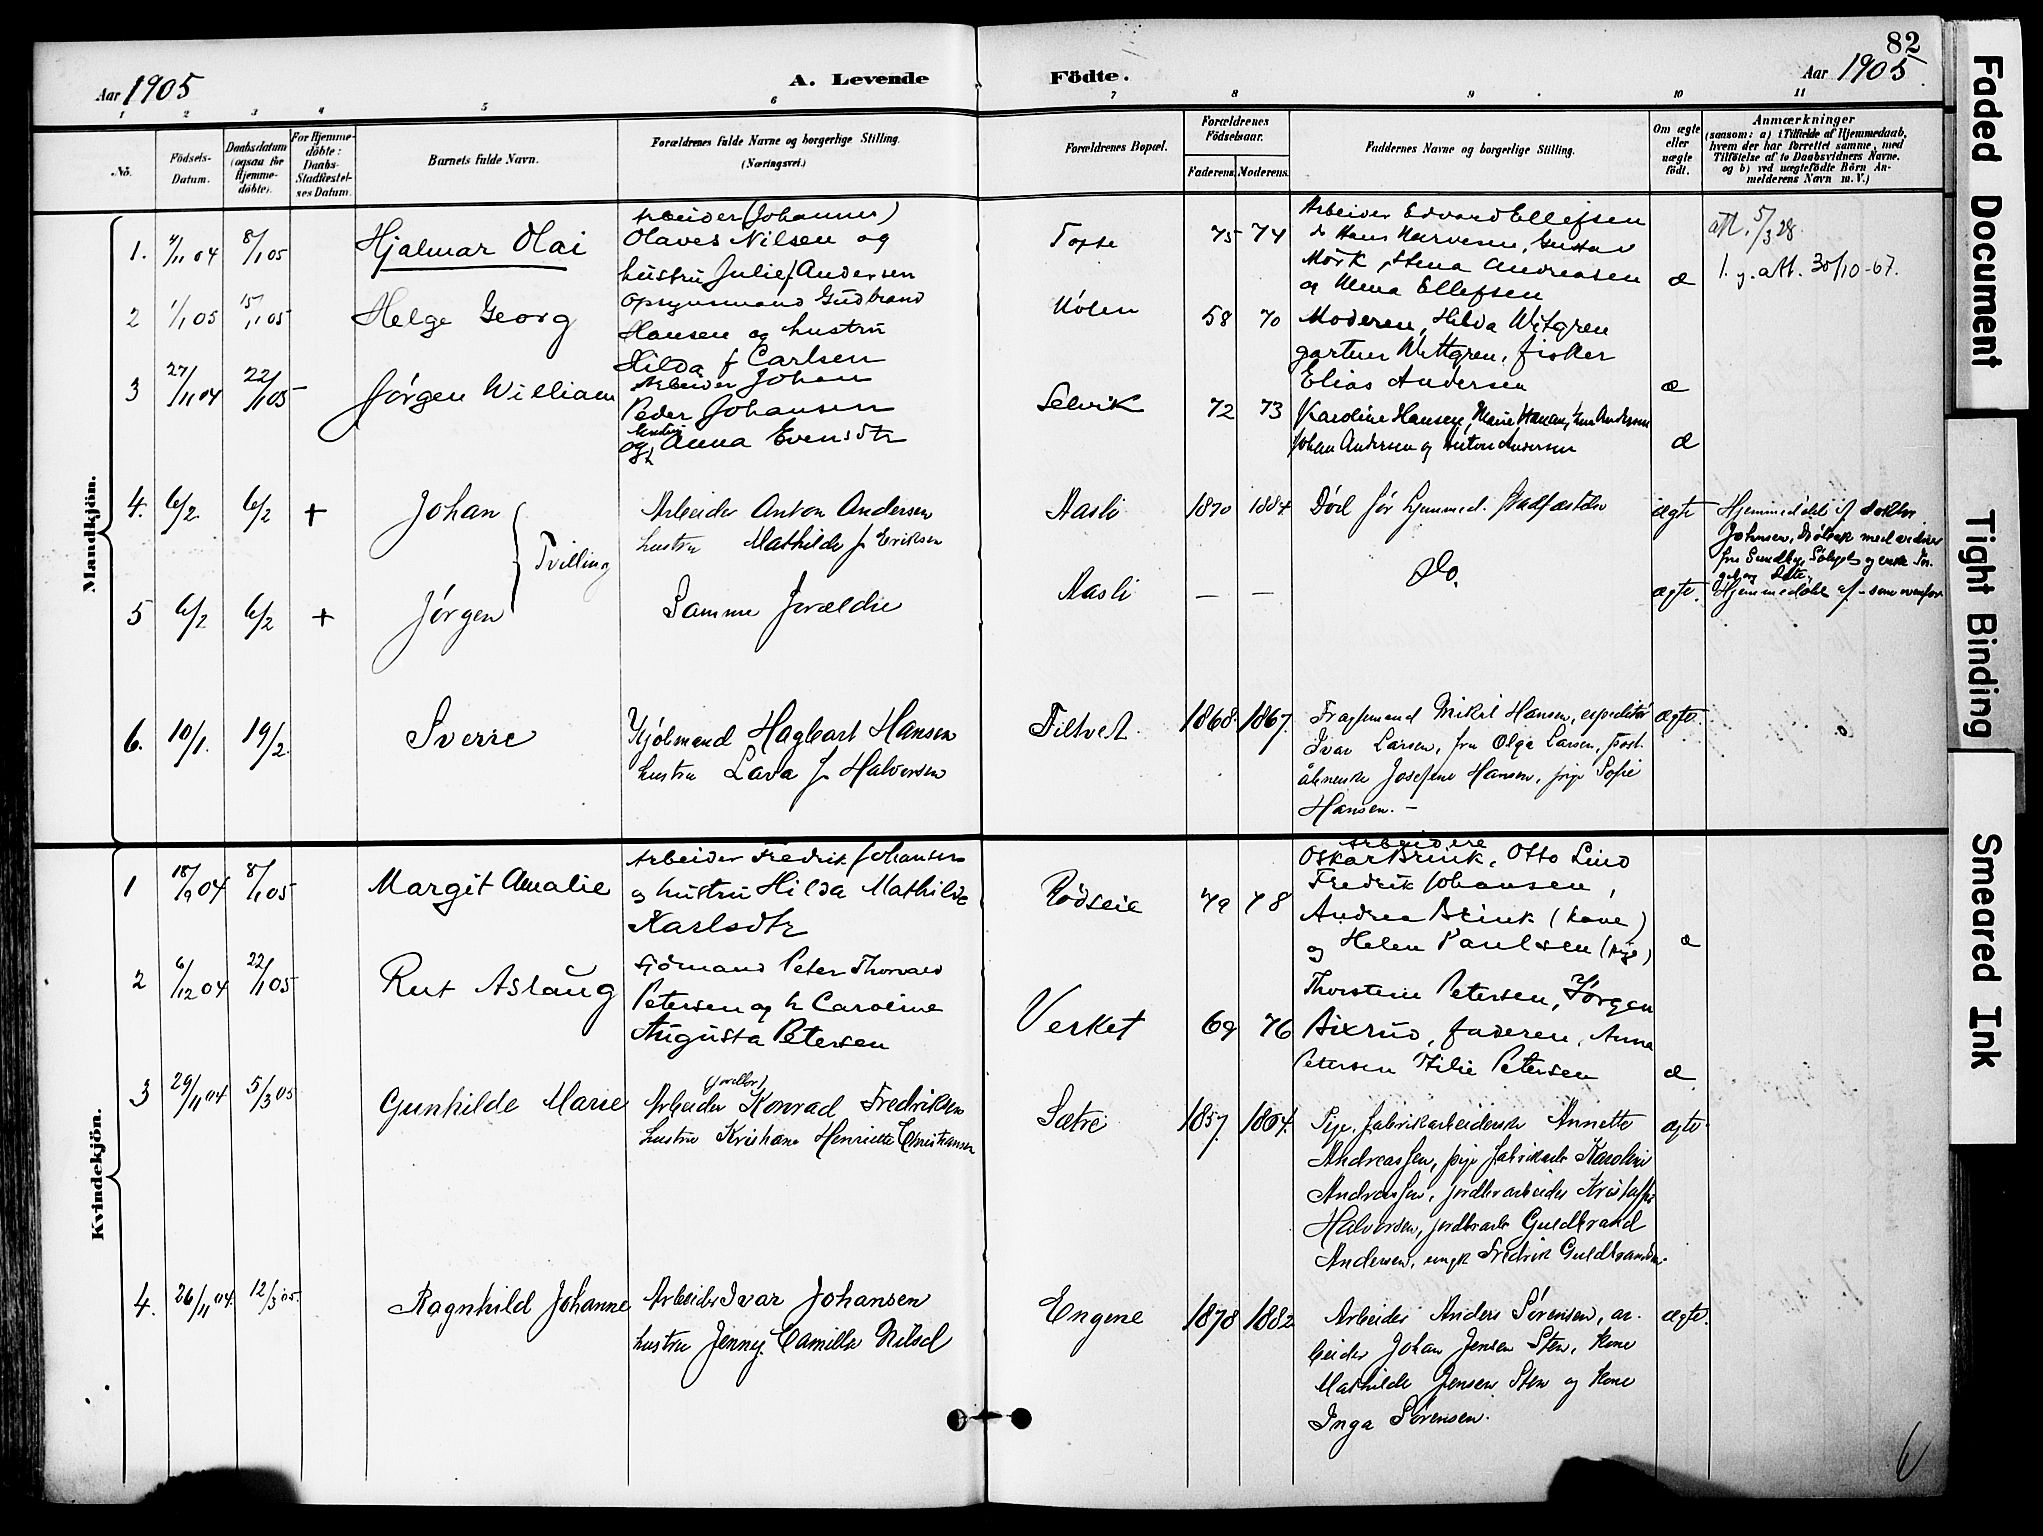 82
Aar 1905
A. Levende
Födte.
Aar 1905
1 2 3 4 5 6 7 8 9 10 11
No.
Födsels-
Datum.
Daabsdatum
(ogsaa for
Hjemme-
döbte).
For Hjemme-
döbte:
Daabs-
Stadfæstel-
ses Datum.
Barnets fulde Navn.
Forældrenes fulde Navne og borgerlige Stilling.
(Næringsvei.)
Forældrenes Bopæl.
Forældrenes
Födselsaar.
Faderens.
Moderens.
Faddernes Navne og borgerlige Stilling.
Om ægte
eller
uægte
födt.
Anmærkninger
(saasom: a) i Tilfælde af Hjemmedaab,
hvem der har forrettet samme, med
Tilföielse af to Daabsvidners Navne,
og b) ved uægtefödte Börn An-
melderens Navn m. V.)
Mandkjön.
1. 4/11 04 8/1 05
Hjalmar Olai
Arbeider (Johannes)
Olaves Nilsen og
hustru Julie f Andersen
Tofte
75 74
Arbeider Edvard Ellefsen
Gustav
Mørk, Stina Andreasen
og Ellefsen
æ
att. 5/3 28
l. y. att. 30/10-67.
2 1/1 05 15/1 05
Helge Georg
Opsynsmand Gudbrand
Hansen og hustru
Hilda f Carlsen
58 70
Moderen, Hilda Witgren
gartner Wittgren, fisker
Elias Andersen
æ
3 27/11 04 22/1 05
Jørgen William
Arbeider Johan
Peder Johansen
og hustru Anna Evensdtr
Selvik
72 73
Karoline Hansen, Marie Hansen,
Johan Andersen og Anton Andersen
æ
4. 6/2 6/2 +
Johan
Tvilling
Arbeider Anton Andersen
hustru Mathilde f Eriksen
Aasli
1870 1884
Død før hjemmed. stadfæstelse
ægte
Hjemmedøbt af doktor
Johnsen, Drøbak med vidner
5 6/2 6/2 +
Jørgen
Samme forældre
Aasli
— —
Do.
ægte.
Hjemmedøbt af - som ovenfor
6. 10/1. 19/2.
Sverre
Kjøbmand Hagbart Hansen
hustru Lava f Halvorsen
Filtvet
1868. 1867.
Mikal Hansen, expeditør
Ivar Larsen, fru Olga Larsen, post-
åbnerske Josefine Hansen, pige Sofie
Hansen. -
ægte.
Kvindekjön.
1 18/9 04 8/1 05
Margit Amalie
Arbeider Fredrik Johansen
og hustru Hilda Mathilde
Karlsdtr
Rødseie
79 78
Arbeidere
Oskar Brink, Otto Lind
Fredrik Johansen,
Andrea Brink (kone)
og Helen Paulsen (pige)
æ
2 6/12 04 22/1 05
Rut Aslaug
Sjømand Peter Thorvald
Petersen og h Caroline
Augusta Petersen
Verket
69 76
Thorstein Petersen, Jørgen
Bixrud, faderen, Anna
Petersen Petersen
æ
3 29/11 04 5/3 05
Gunhilde Marie
Arbeider Konrad Fredriksen
hustru Kristiane Henriette Christiansen
Sætre
1857. 1864.
Pige, fabrikarbeiderske Annette
Andreassen, pige fabrikarb Karoline
Andreassen, jordbrarbeider Kristoffer
Halvorsen, jordbrarb Guldbrand
Andersen, ungk Fredrik Guldbrandsen.
ægte.
4. 26/11 04. 12/3 05.
Ragnhild Johanne
Arbeider Ivar Johansen
hustru Jenny Camilla Nilsd
Engene
1878 1882
Arbeider Anders Sørensen, ar-
beider Johan Jensen Sten, kone
Mathilde Jensen Sten og kone
Inga Sørensen.
ægte.
Faded Document
Tight Binding
Smeared Ink